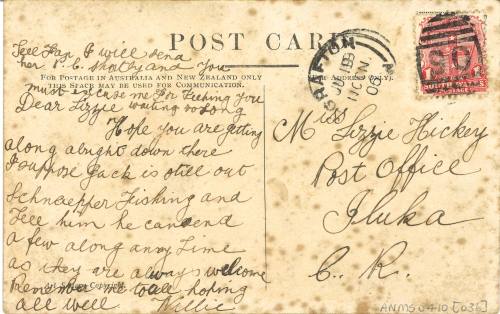 Tell Fan I will send
her P.C. shortly and you
POST CARD
FOR POSTAGE IN AUSTRALIA AND NEW ZEALAND ONLY
THIS SPACE MAY BE USED FOR COMMUNICATION.
(ADDRESS ONLY).
must excuse me for keeping you
waiting so long
Dear Lizzie
Hope you are getting
along alright down there
I suppose Jack is still out
Schnapper Fishing and
Tell him he can send
a few along any Time
as they are always welcome
Remember me to all hoping
all well Willie
Miss Lizzie Hickey
Post Office
Iluka
C. R.
GRAFTON
ANMS0410[036]